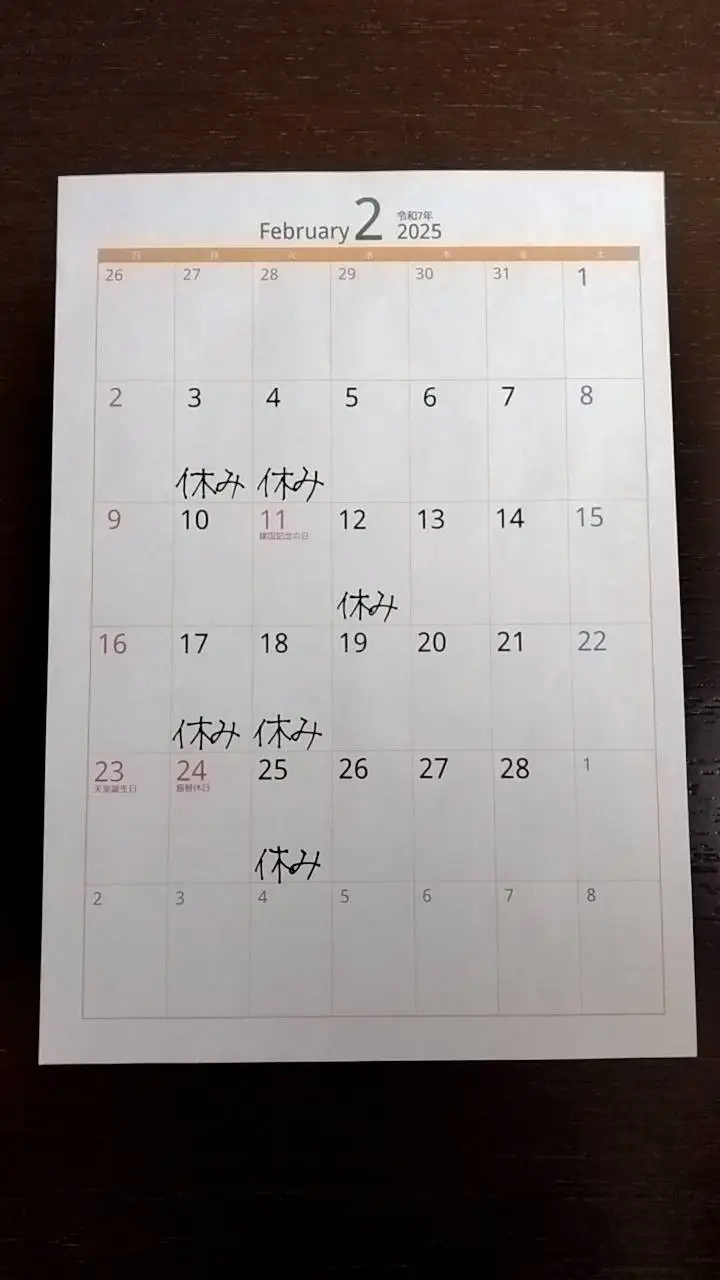 February 2 令和7年
2025
日 月 火 水 木 金 土
26 27 28 29 30 31 1
2 3 4 5 6 7 8
休み 休み
9 10 11 12 13 14 15
建国記念の日
休み
16 17 18 19 20 21 22
休み 休み
23 24 25 26 27 28 1
天皇誕生日 振替休日
休み
2 3 4 5 6 7 8